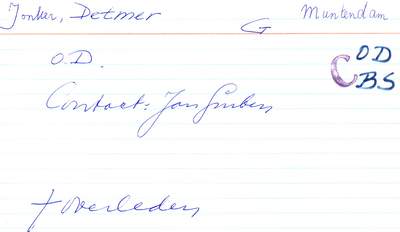 Jonker, Detmer G Muntendam
O.D.
C OD
BS
Contact: Jan
† overleden